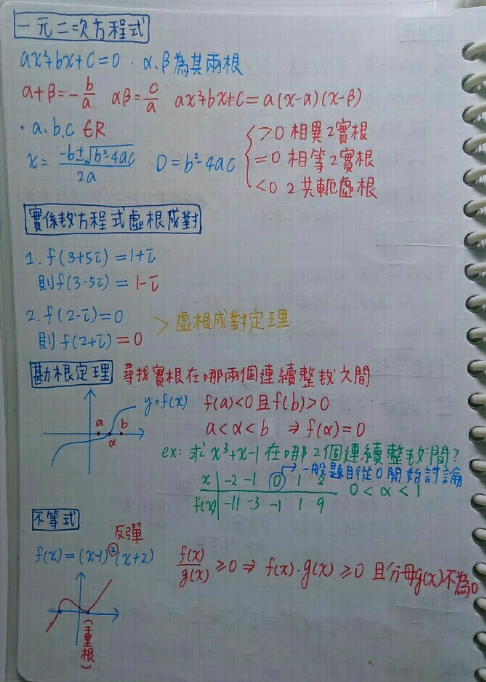 一元二次方程式
ax²+bx+c=0 · α.β為其兩根
α+β=-b/a αβ=c/a ax²+bx+c=a(x-α)(x-β)
· a.b.c ∈R
x=(-b±√b²-4ac)/2a D=b²-4ac
>0 相異2實根
=0 相等2實根
<0 2共軛虛根
實係數方程式虛根成對
1. f(3+5i)=1+i
則f(3-5i)=1-i
2. f(2-i)=0
則f(2+i)=0
>虛根成對定理
勘根定理 尋找實根在哪兩個連續整數之間
y=f(x) f(a)<0且f(b)>0
a<α<b ⇒f(α)=0
a α b
ex: 求x³+x-1在哪2個連續整數間?
→一般題目從0開始討論
x -2 -1 0 1 2
f(x) -11 -3 -1 1 9
0<α<1
不等式
反彈
f(x)=(x-1)²(x+2)
f(x)/g(x) ≥0 ⇒ f(x)·g(x)≥0 且分母g(x)不為0
(重根)